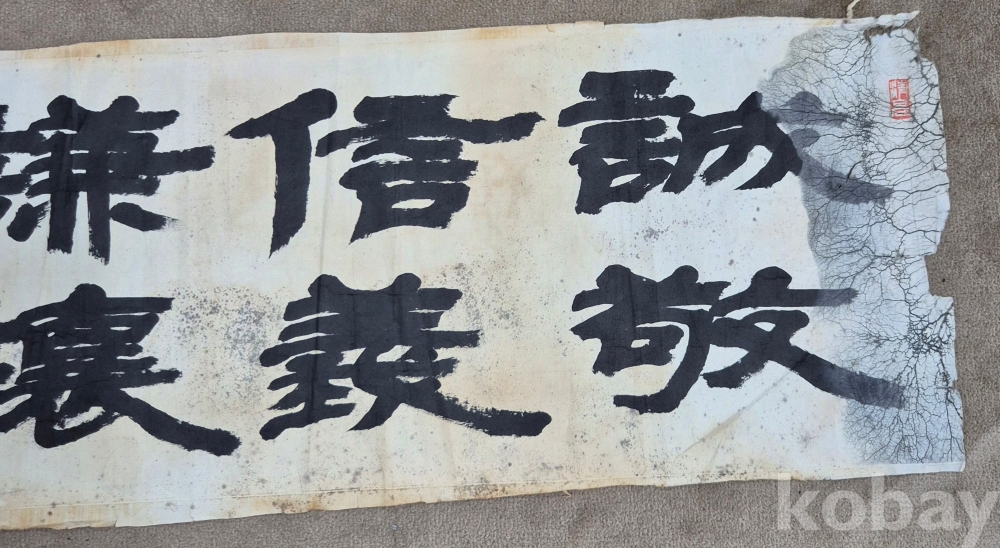 誠敬
信義
謙讓
kobay